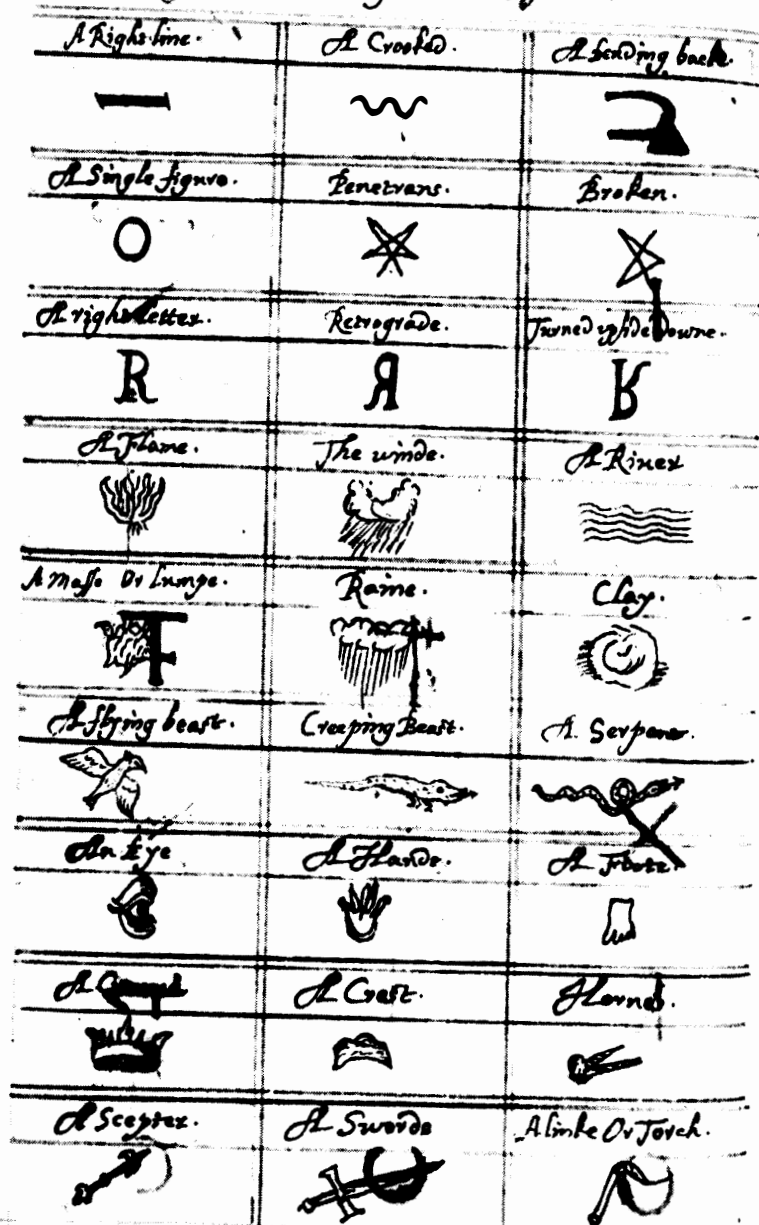 A Right line. A Crooked. A bending back.
A Single figure. Penetrans. Broken.
A right Letter. Retrograde. Turned upside Downe.
R R R
A Flame. The winde. A River
A Masse Or Lumpe. Raine. Clay.
A flying beast. Creeping Beast. A. Serpent.
An Eye A Hande. A Foote.
A A Crest. Hornes.
A Scepter. A Sworde A linke Or Torch.